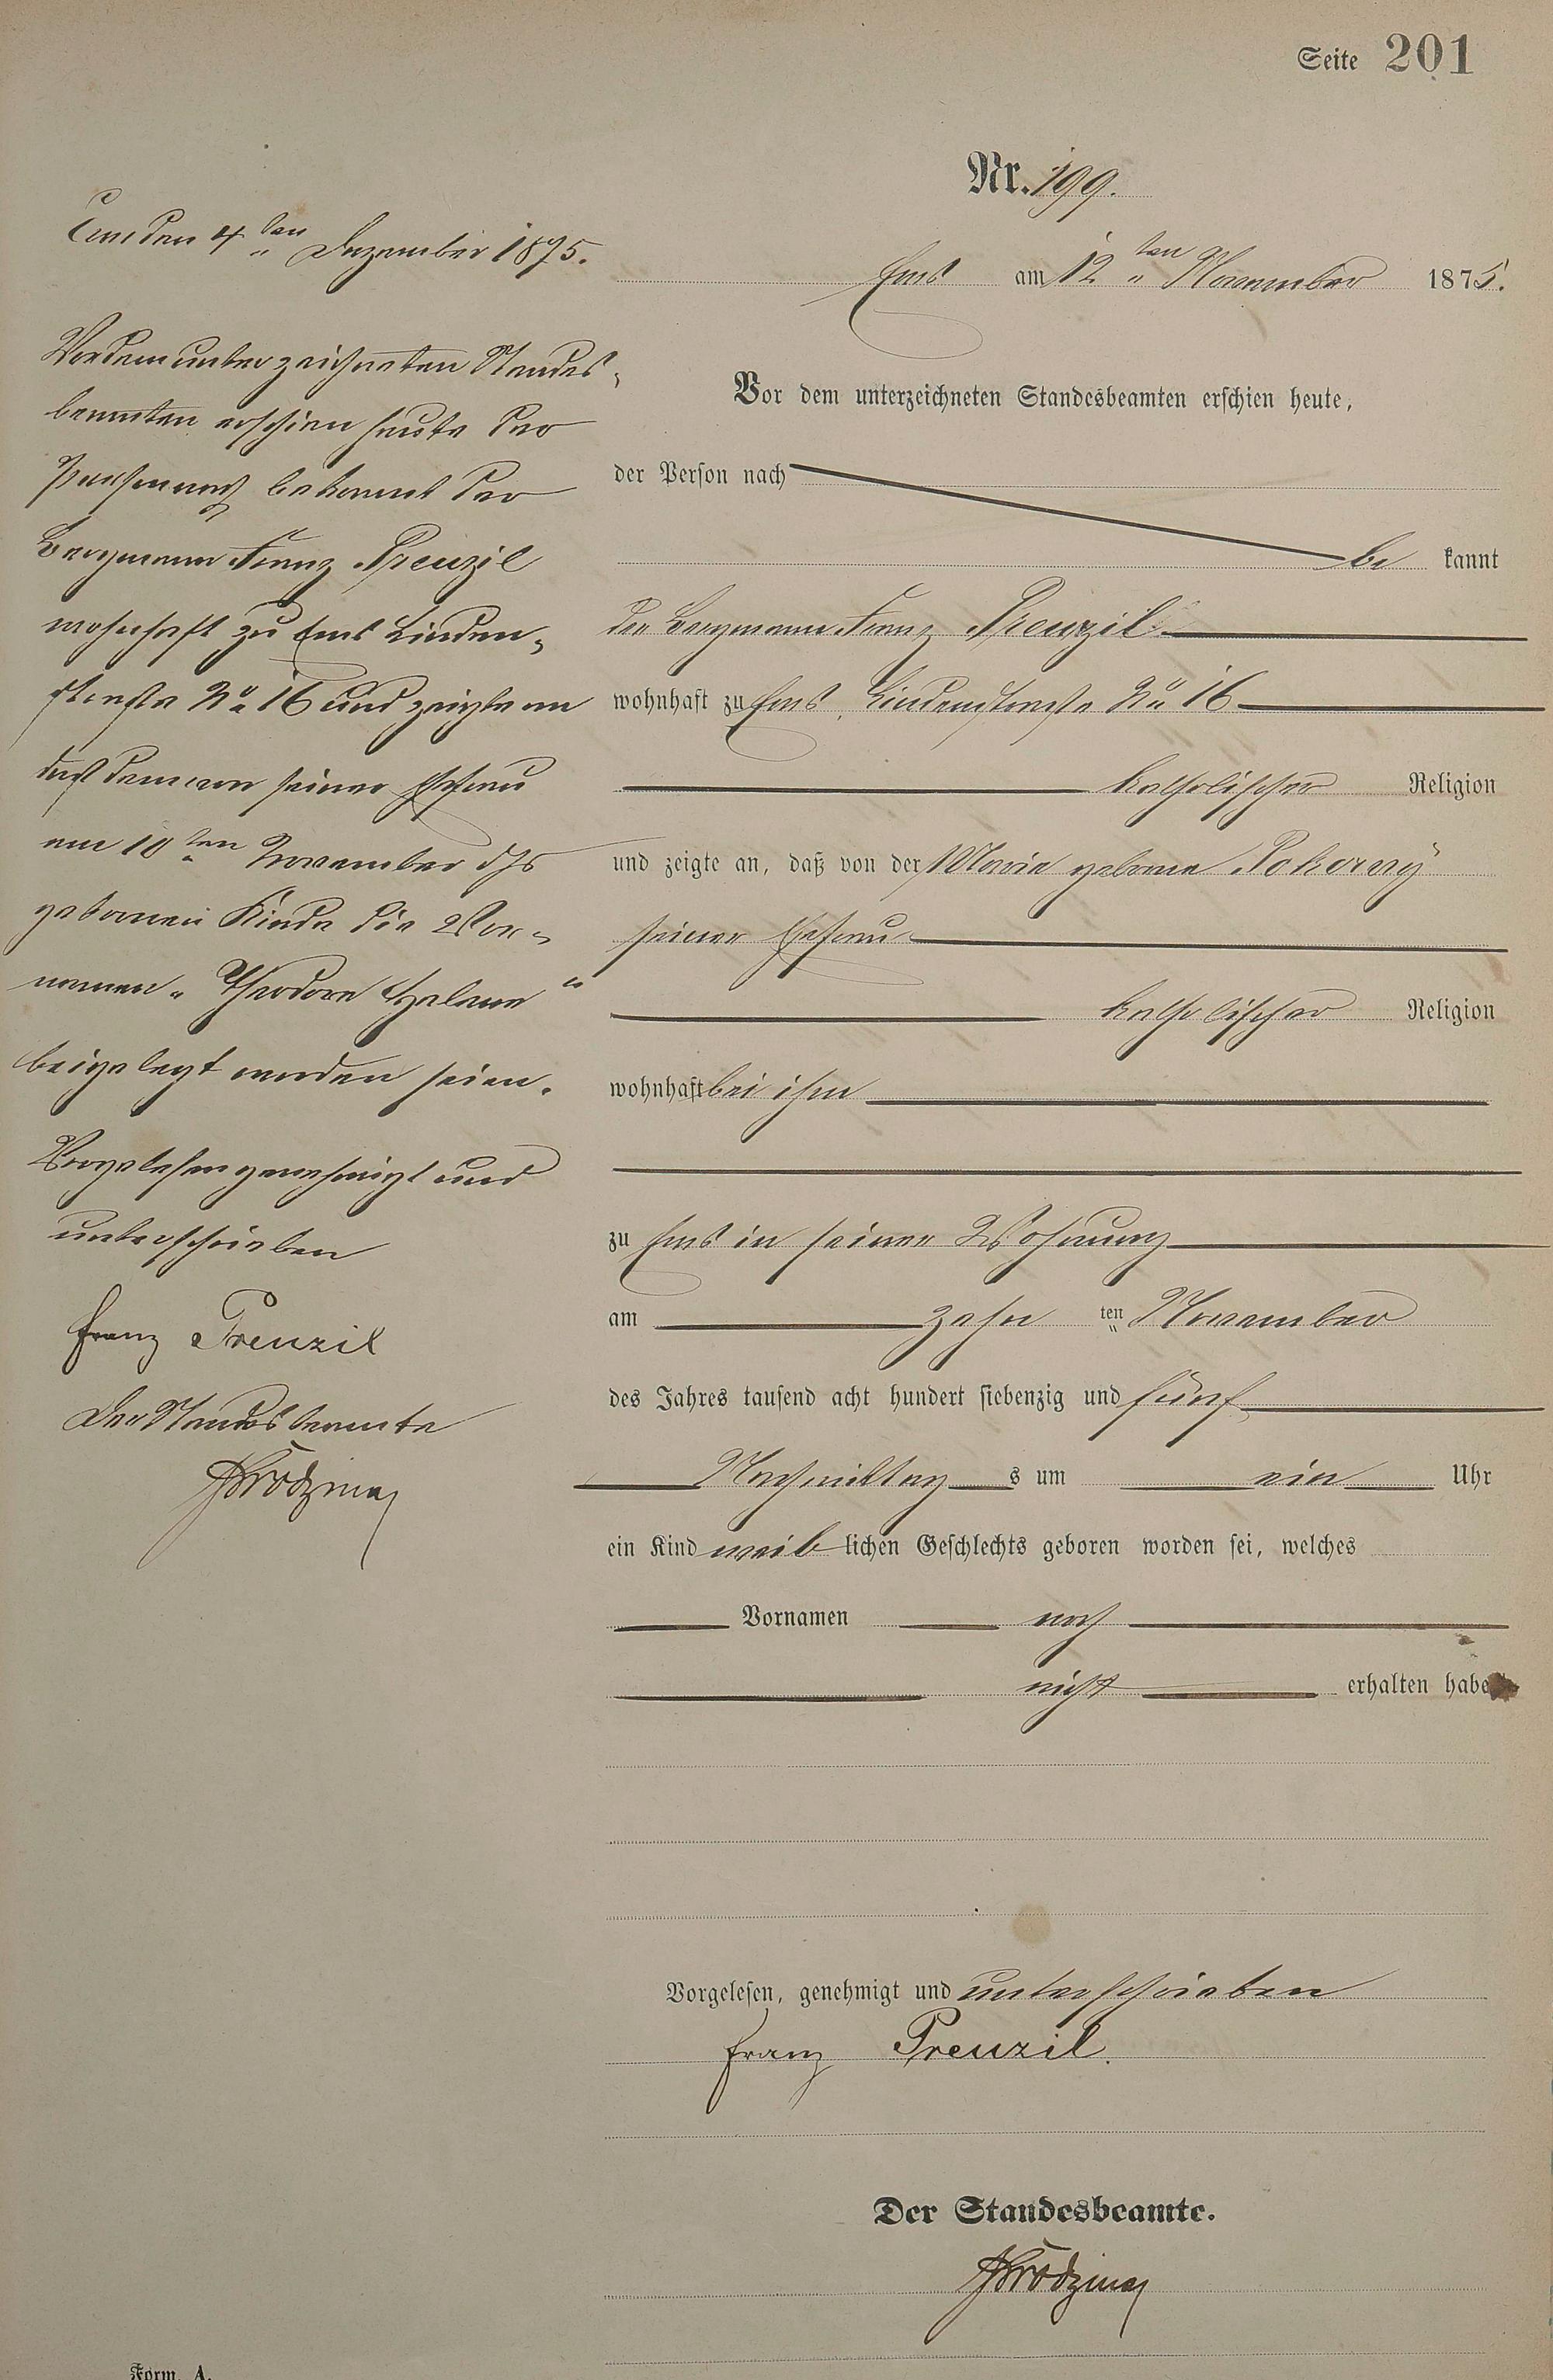 Seite 201
Nr. 199.
Ems am 12ten November 1875.
Vor dem unterzeichneten Standesbeamten erschien heute,
der Person nach
be kannt
der Bergmann Franz Prenzil
wohnhaft zu Ems, Lindenstraße No 16
katholischer Religion
und zeigte an, daß von der Maria geborne Pokorny
seiner Ehefrau
katholischer Religion
wohnhaft bei ihm
zu Ems in seiner Wohnung
am zehn ten November
des Jahres tausend acht hundert siebenzig und fünf
Nachmittag s um ein Uhr
ein Kind weib lichen Geschlechts geboren worden sei, welches
Vornamen noch
nicht erhalten habe
Vorgelesen, genehmigt und unterschrieben
Franz Prenzil.
Der Standesbeamte.
Ems den 4ten Dezember 1875.
Vor dem unterzeichneten Standes-
beamten erschien heute der
Person nach bekannt der
Bergmann Franz Prenzil
wohnhaft zu Ems Linden-
straße No 16 und zeigte an
daß dem von seiner Ehefrau
am 10ten November d Js
gebornen Kinde die Vor-
namen „Theodore Helene“
beigelegt worden seien.
Vorgelesen genehmigt und
unterschrieben
Franz Prenzil
Der Standesbeamte
Form. A.